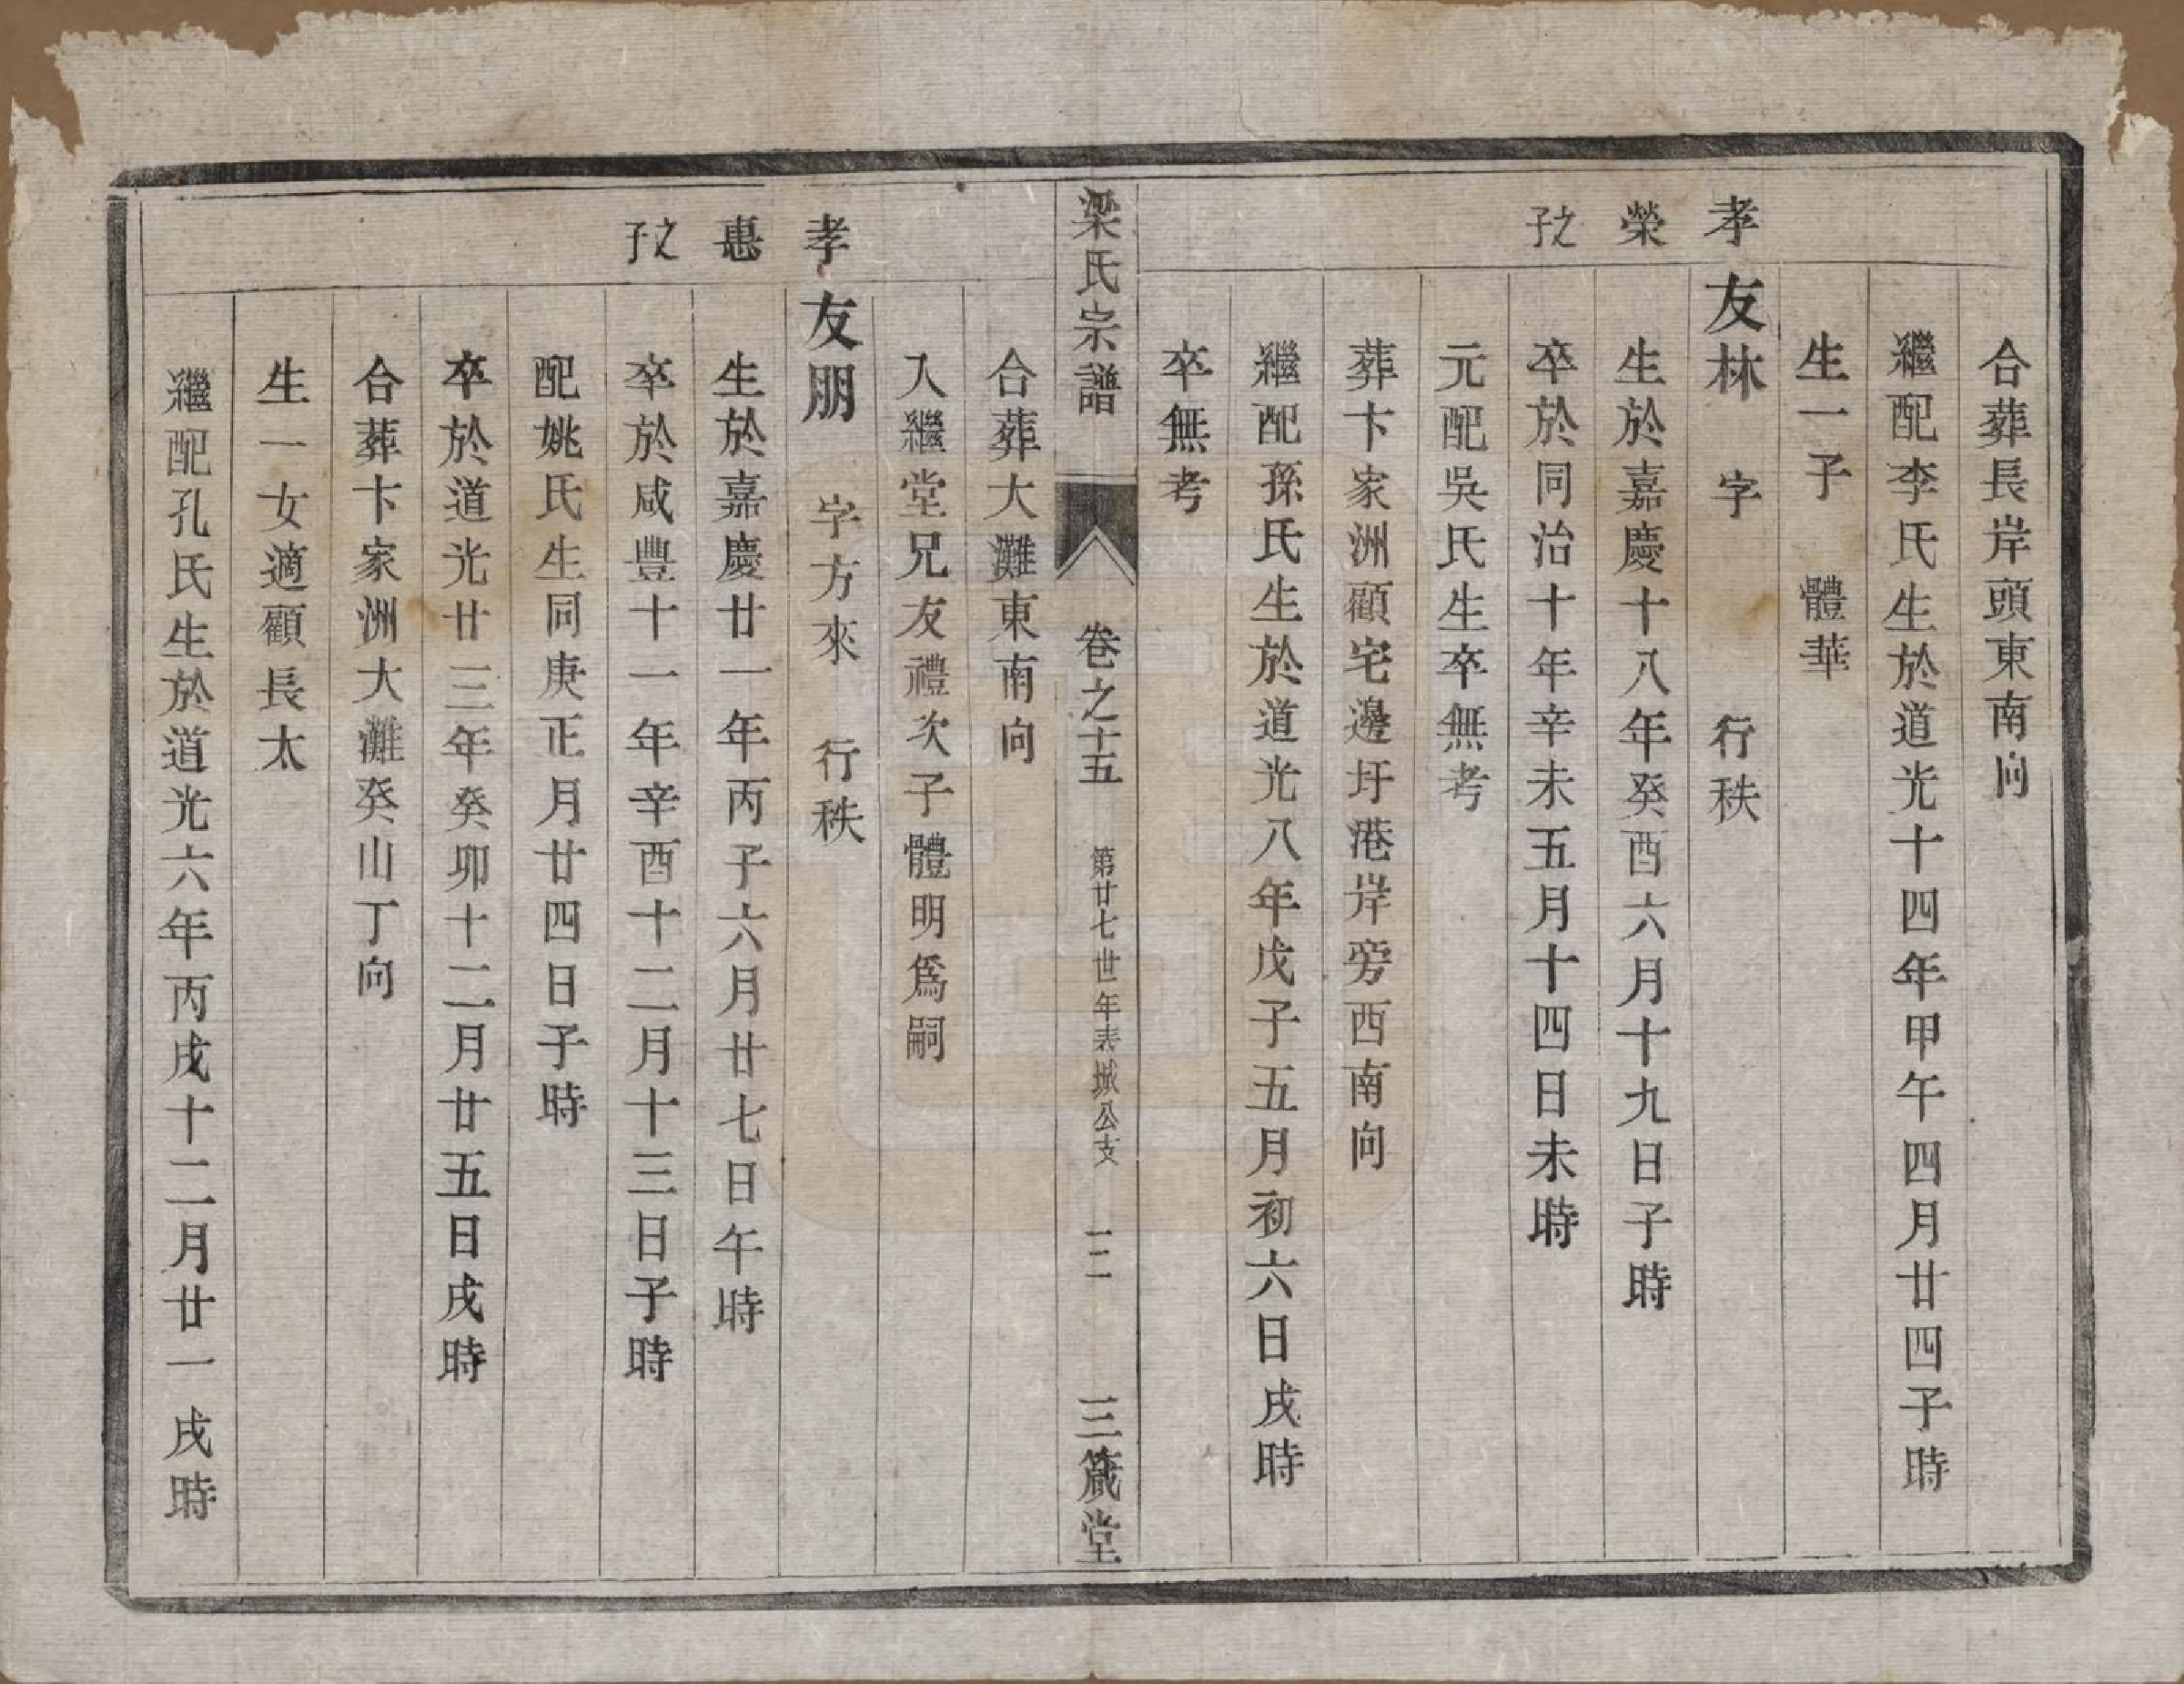 合葬長岸頭東南向
繼配李氏生於道光十四年甲午四月廿四子時
生一子　體華
孝
友林　字　　　行秩
榮
生於嘉慶十八年癸酉六月十九日子時
之子
卒於同治十年辛未五月十四日未時
元配吳氏生卒無考
葬卞家洲顧宅邊圩港岸旁西南向
繼配孫氏生於道光八年戊子五月初六日戌時
卒無考
梁氏宗譜　卷之十五　第廿七世年表城公支　一二　三箴堂
合葬大灘東南向
入繼堂兄友禮次子體明爲嗣
孝
友朋　字方來　行秩
惠
生於嘉慶廿一年丙子六月廿七日午時
之子
卒於咸豐十一年辛酉十二月十三日子時
配姚氏生同庚正月廿四日子時
卒於道光廿三年癸卯十二月廿五日戌時
合葬卞家洲大灘癸山丁向
生一女適顧長太
繼配孔氏生於道光六年丙戌十二月廿一戌時